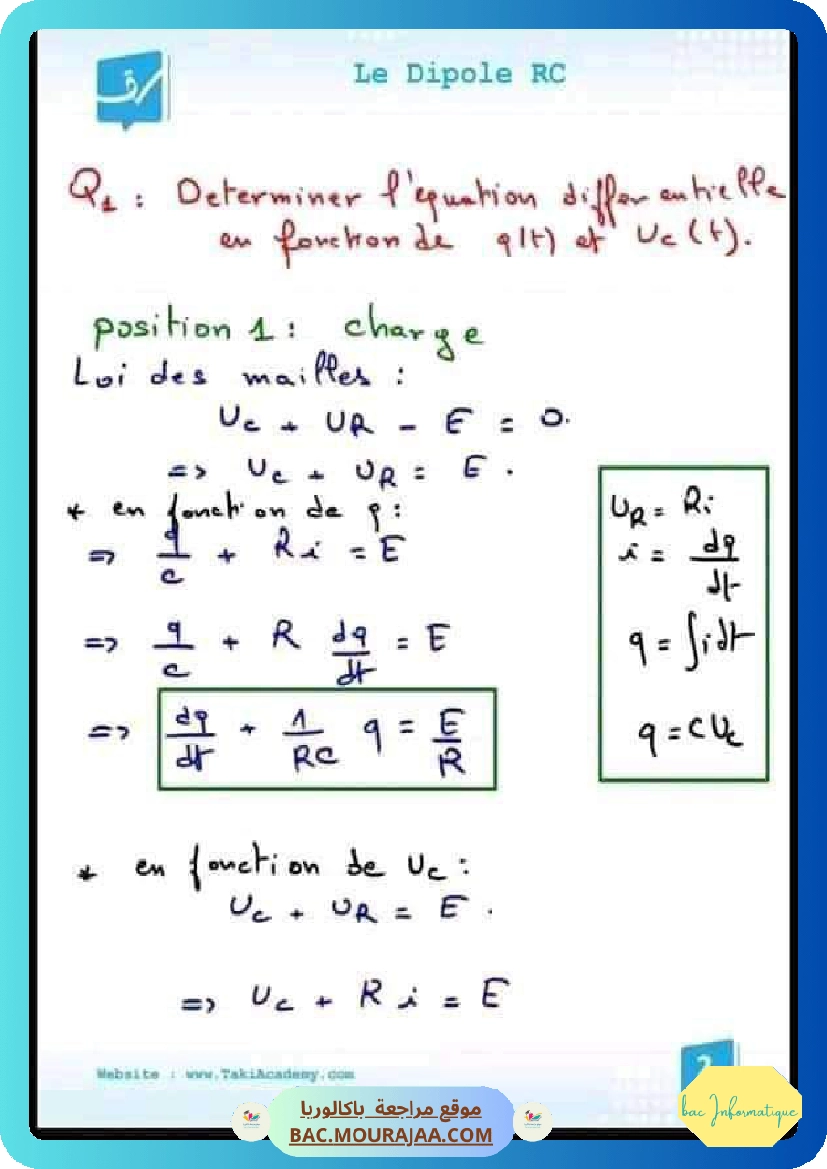 Le Dipole RC
Q1 : Determiner l'equation differentielle
en fonction de q(t) et Uc(t).
position 1 : charge
Loi des mailles :
Uc + UR - E = 0.
=> Uc + UR = E .
* en fonction de q :
=> q/c + Ri = E
=> q/c + R dq/dt = E
=> dq/dt + 1/RC q = E/R
UR = Ri
i = dq/dt
q = ∫idt
q = CUc
* en fonction de Uc :
Uc + UR = E .
=> Uc + Ri = E
Website : www.TakiAcademy.com
2
موقع مراجعة باكالوريا
BAC.MOURAJAA.COM
bac Informatique